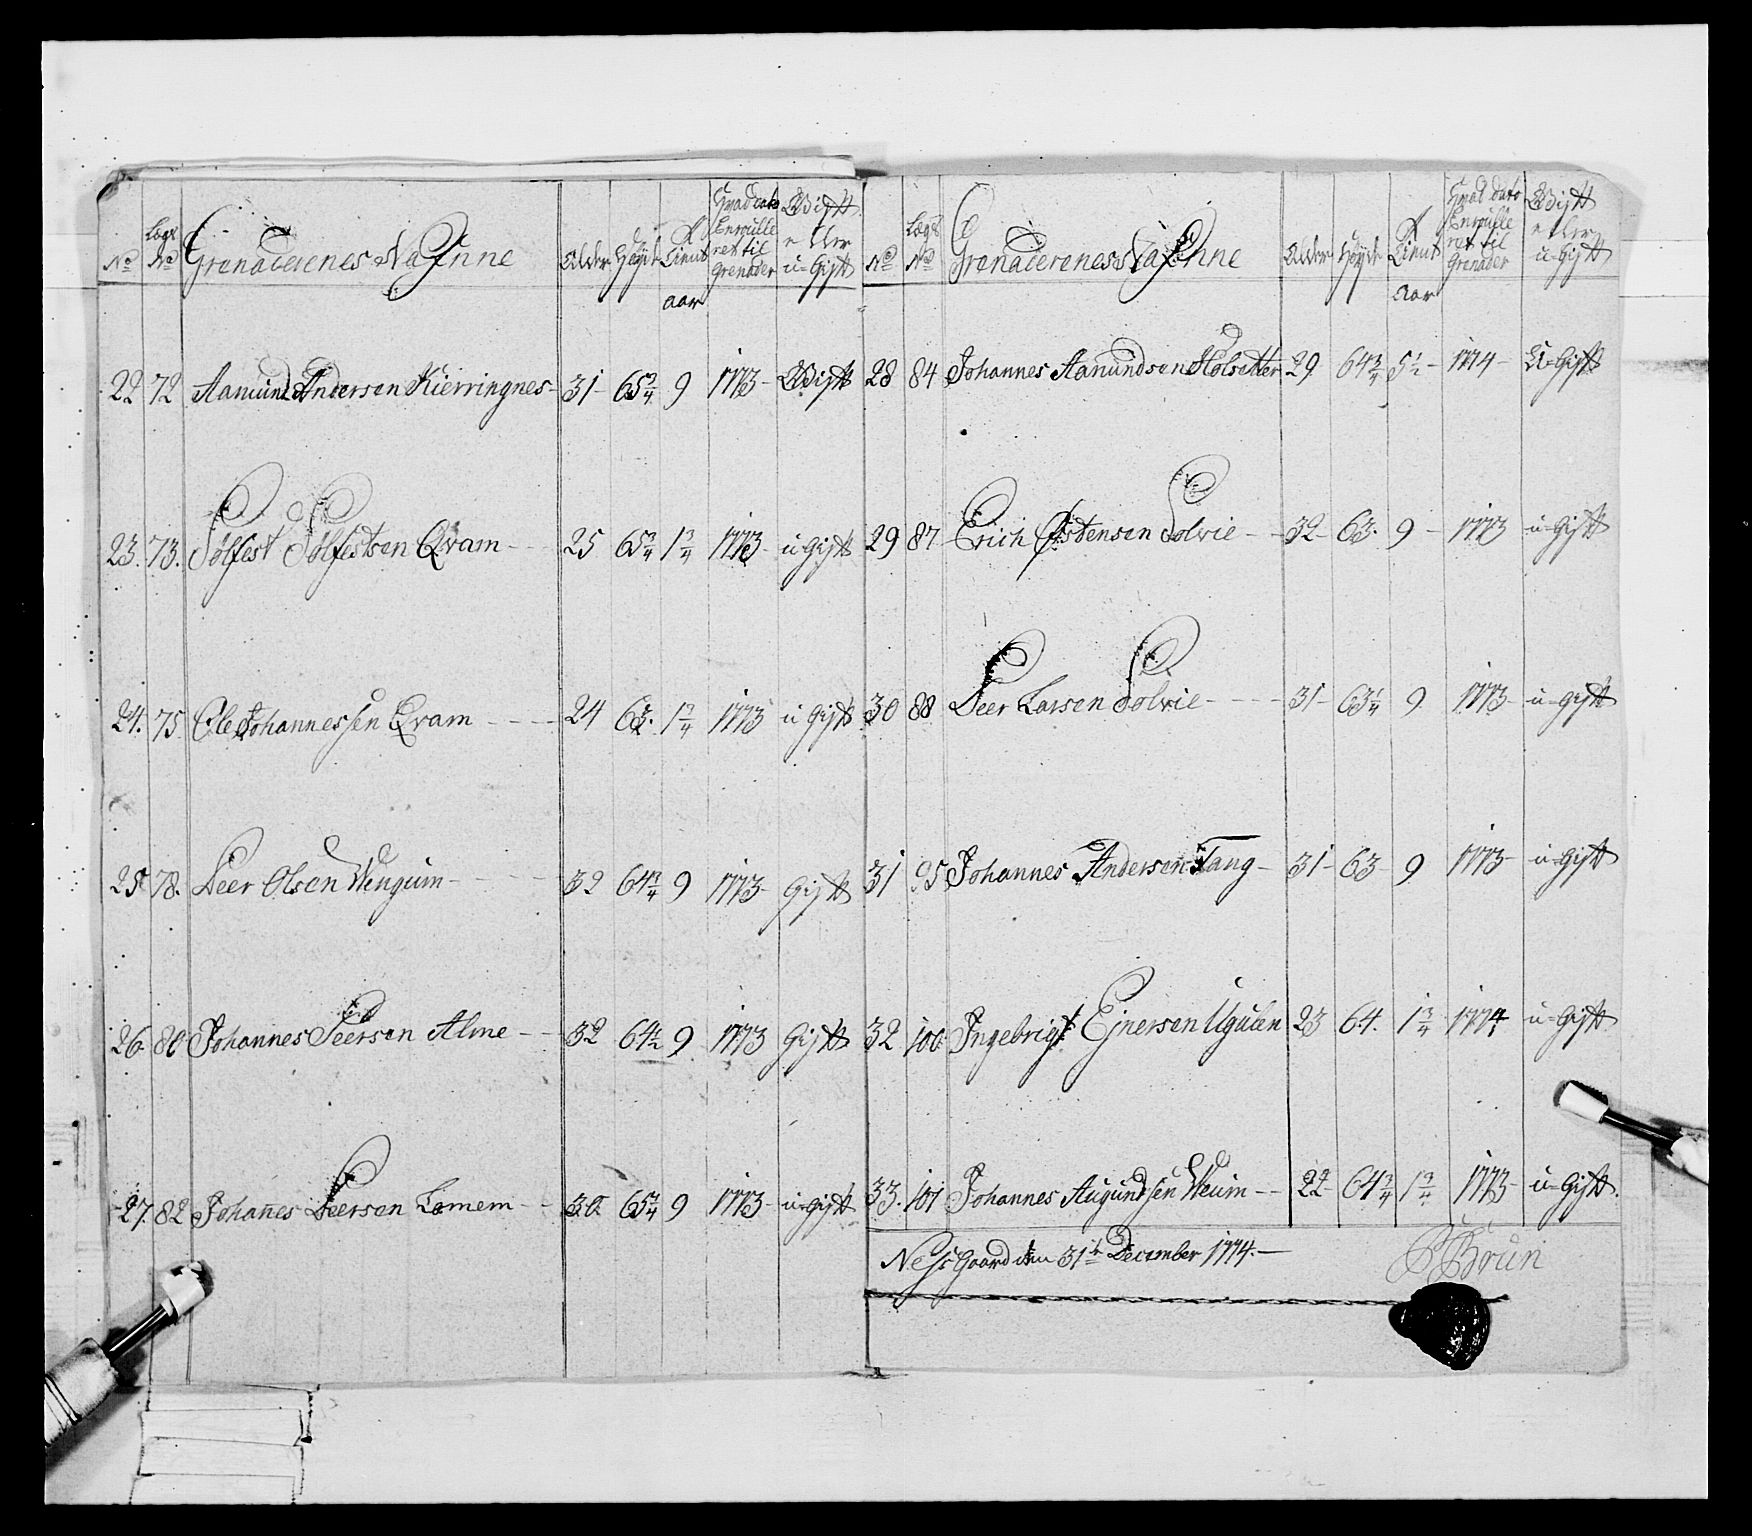 No Lægs No Grenaderenes Nafnne Alder Høyde Tient aar Hvad dato Enroulleret til Grenader Gift eller u-Gift
22 72 Aamund Andersen Kierringnes 31 65 3/4 9 1773 Gift
23. 73. Sølfest Sølfestsen Qvam 25 65 3/4 1 3/4 1773 u Gift
24. 75 Ole Johannessen Qvam 24 63. 1 3/4 1773 u Gift
25 78. Peer Olsen Wengum 32 64 3/4 9 1773 Gift
26 80 Johannes Peersen Alme 32 64 1/2 9 1773 Gift
27. 82 Johanes Peersen Lomem 30 65 3/4 9 1773 u-Gift
No Lægs No Grenaderenes Nafnne Alder Høyde Tient Aar Hvad dato Enroulleret til Grenader Gift eller u-Gift
28 84 Johannes Aamundsen Holsetter 29 64 3/4 5 1/2 1774 U-Gift
29 87 Erich Østensen Solvie 32 63. 9 1773 u-Gift
30 88 Peer Larsen Solvie 31 63 1/4 9 1773 u-gift
31 95 Johannes Andersen Tang 31 63 9 1773 u-Gift
32 100 Ingebrigt Ejnersen Ugulen 23 64. 1 3/4 1774 u-Gift
33. 101 Johannes Augundsen Weum 22 64 3/4 1 3/4 1773 u-Gift.
Nessgaard den 31te December 1774.
Brun